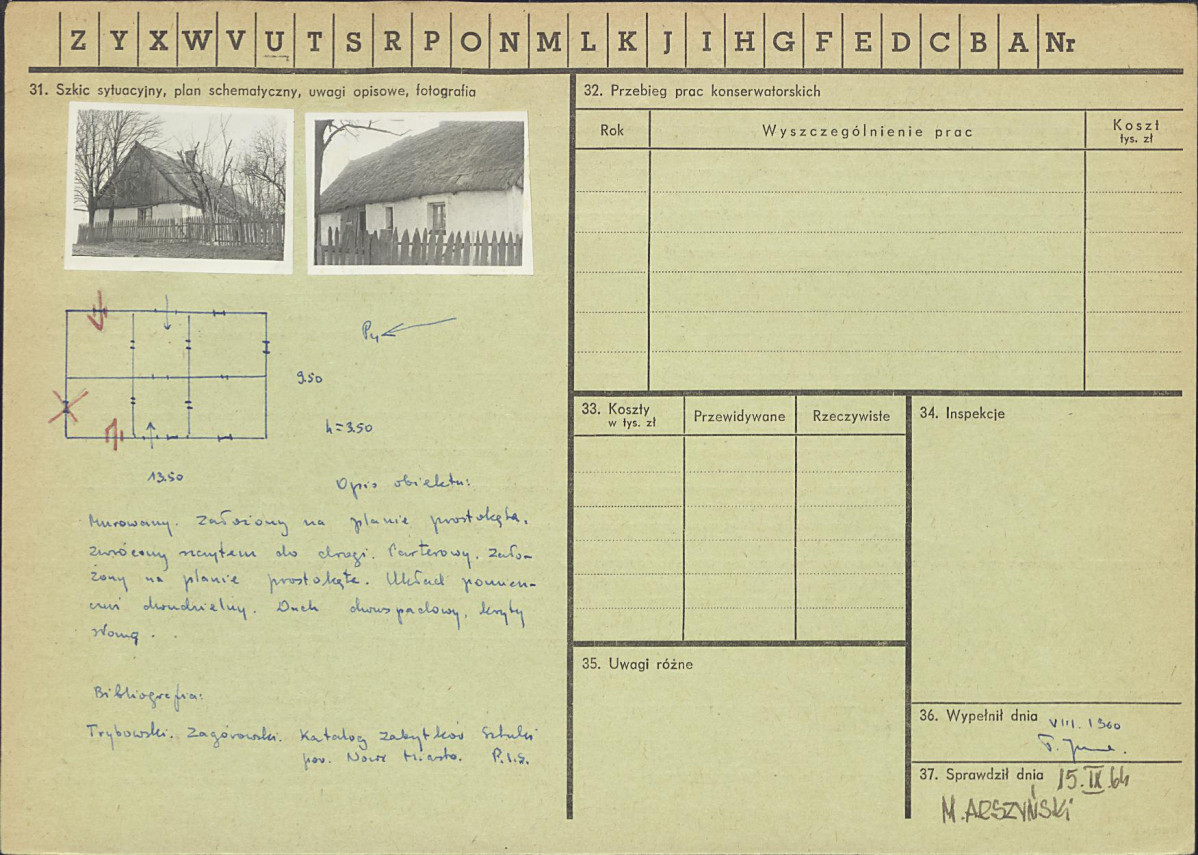 Z Y X W V U T S R P O N M L K J I H G F E D C B A Nr
31. Szkic sytuacyjny, plan schematyczny, uwagi opisowe, fotografia
9.50
h = 3.50
13.50
Opis obiektu:
Murowany. Założony na planie prostokąta,
zwrócony szczytem do drogi. Parterowy. Zało-
żony na planie prostokąta. Układ pomiesz-
czeń dwudzielny. Dach dwuspadowy, kryty
słomą.
Bibliografia:
Trybowski. Zagórowski. Katalog Zabytków Sztuki
pow. Nowe Miasto. P.I.S.
32. Przebieg prac konserwatorskich
Rok Wyszczególnienie prac Koszt
tys. zł
33. Koszty
w tys. zł
Przewidywane Rzeczywiste
34. Inspekcje
35. Uwagi różne
36. Wypełnił dnia VIII. 1960
37. Sprawdził dnia 15.IX.64
M. ARSZYŃSKI